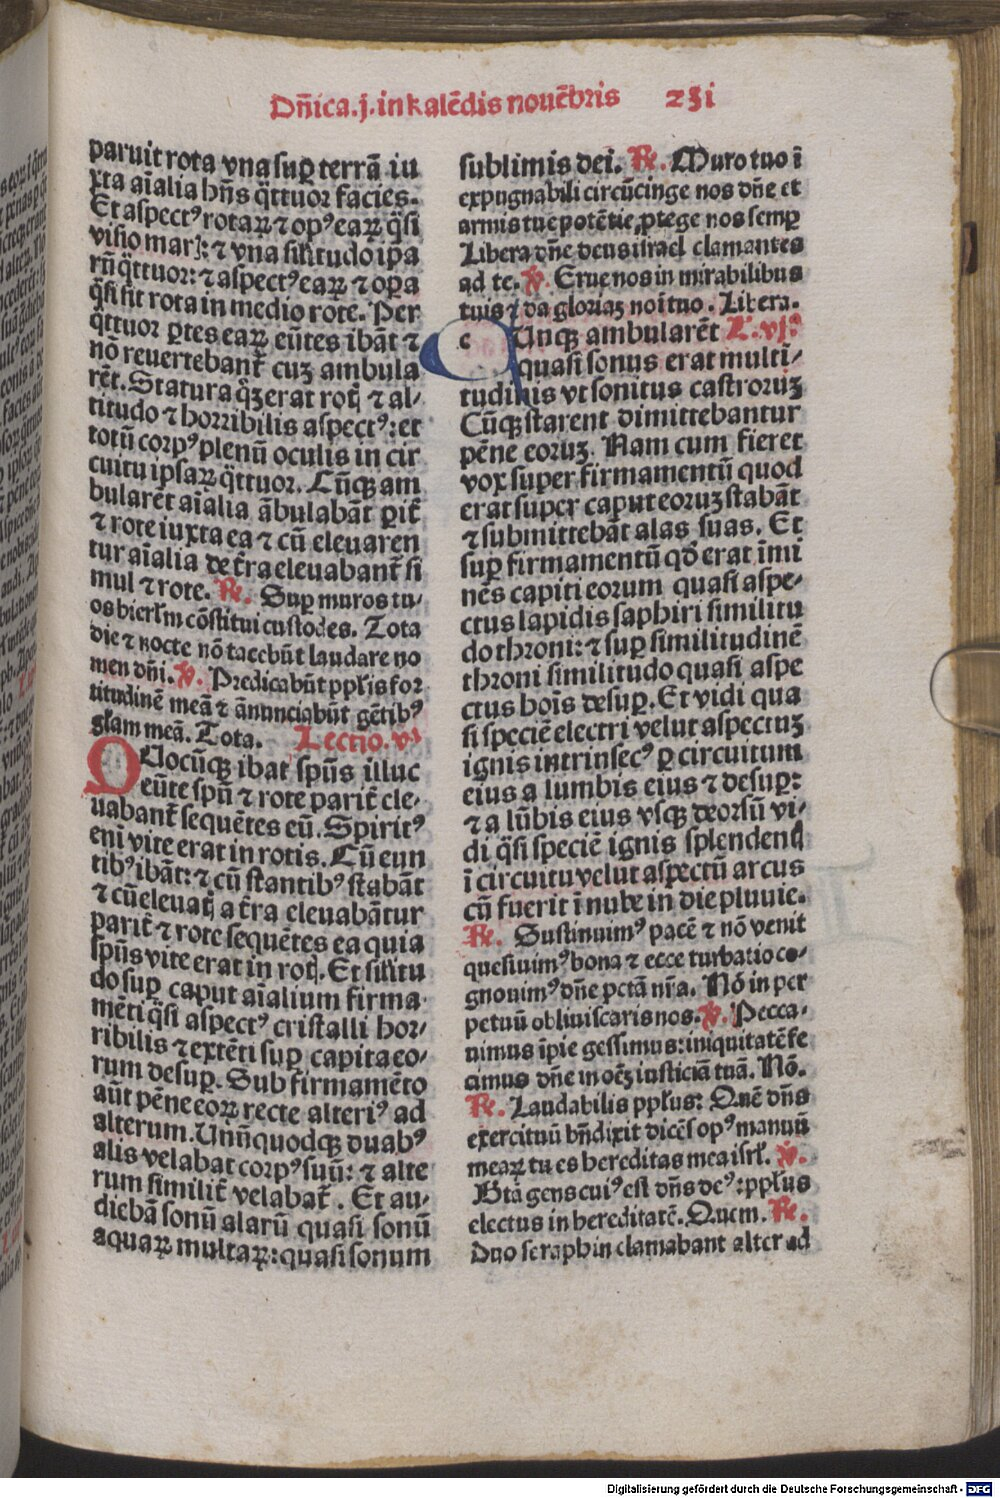 Dn̄ica .j. in kalēdis nouēbris 231
paruit rota vna suꝑ terrā iu
xta aīalia hn̄s q̈ttuor facies.
Et aspectꝰ rotaꝝ ⁊ opꝰ eaꝝ q̈si
visio marꝭ: ⁊ vna sil̄itudo ipa
rū q̈ttuor: ⁊ aspectꝰ eaꝝ ⁊ oꝑa
q̈si sit rota in medio rote. Per
q̈ttuor ꝑtes eaꝝ eūtes ibāt ⁊
nō reuertebant̄ cuꝫ ambula
rēt. Statura q̄ꝫ erat rotꝭ ⁊ al-
titudo ⁊ horribilis aspectꝰ: et
totū corpꝰ plenū oculis in cir
cuitu ipsaꝝ q̈ttuor. Cūqꝫ am
bularēt aīalia ābulabāt ꝑit̄
⁊ rote iuxta ea ⁊ cū eleuaren
tur aīalia de t̄ra eleuabant̄ si
mul ⁊ rote. ℟. Suꝑ muros tu-
os hierl̄m cōstitui custodes. Tota
die ⁊ nocte nō tacebūt laudare no
men dn̄i. ℣. Predicabūt ppl̄is for
titudinē meā ⁊ ānunciabūt gētibꝰ
gl̄am meā. Tota. Lectio. vi
QUocūqꝫ ibat spūs illuc
eūte spū ⁊ rote parit̄ ele-
uabant̄ sequētes eū. Spiritꝰ
eni vite erat in rotis. Cū eun
tibꝰ ibāt: ⁊ cū stantibꝰ stabāt
⁊ cū eleuatꝭ a t̄ra eleuabāntur
parit̄ ⁊ rote sequētes ea quia
spūs vite erat in rotꝭ. Et sil̄itu
do suꝑ caput aīalium firma
mēti q̈si aspectꝰ cristalli hor-
ribilis ⁊ extēti suꝑ capita eo-
rum desuꝑ. Sub firmamēto
aūt pēne eoꝝ recte alteriꝰ ad
alterum. Unūquodqꝫ duabꝰ
alis velabat corpꝰ suū: ⁊ alte
rum similit̄ velabat̄. Et au-
diebā sonū alarū quasi sonū
aquaꝝ multaꝝ: quasi sonum
sublimis dei. ℟. Muro tuo ī
expugnabili circūcinge nos dn̄e et
armis tue potētie ꝓtege nos semꝑ
Libera dn̄e deus israel clamantes
ad te. ℣. Erue nos in mirabilibus
tuis ⁊ da gloriaꝫ noī tuo. Libera.
c Unqꝫ ambularēt L. vij.ᵃ
quasi sonus erat multi-
tudinis vt sonitus castroruꝫ
Cūqꝫ starent dimittebantur
pēne eoruꝫ. Nam cum fieret
vox super firmamentū quod
erat super caput eoruꝫ stabāt
⁊ submittebāt alas suas. Et
suꝑ firmamentū qđ erat īmi
nēs capiti eorum quasi aspe-
ctus lapidis saphiri similitu
do throni: ⁊ suꝑ similitudinē
throni similitudo quasi aspe
ctus hoīs desuꝑ. Et vidi qua
si speciē electri velut aspectuꝫ
ignis intrinsecꝰ ꝑ circuitum
eius a lumbis eius ⁊ desuꝑ:
⁊ a lūbis eius vsqꝫ deorsū vi-
di q̈si speciē ignis splendentꝭ
ī circuitu velut aspectū arcus
cū fuerit ī nube in die pluuie.
℟. Sustinuimꝰ pacē ⁊ nō venit
quesiuimꝰ bona ⁊ ecce turbatio co-
gnouimꝰ dn̄e pctā nr̄a. Nō in per
petuū obliuiscaris nos. ℣. Pecca-
uimus īpie gessimus: iniquitatē fe
cimus dn̄e in oēꝫ iusticiā tuā. Nō.
℟. Laudabilis ppl̄us: Quē dn̄s
exercituū bn̄dixit dicēs opꝰ manuū
meaꝝ tu es hereditas mea isrl̄. ℣.
Btā gens cuiꝰ est dn̄s deꝰ: ppl̄us
electus in hereditatē. Quem. ℟.
Duo seraphin clamabant alter ad
Digitalisierung gefördert durch die Deutsche Forschungsgemeinschaft - DFG